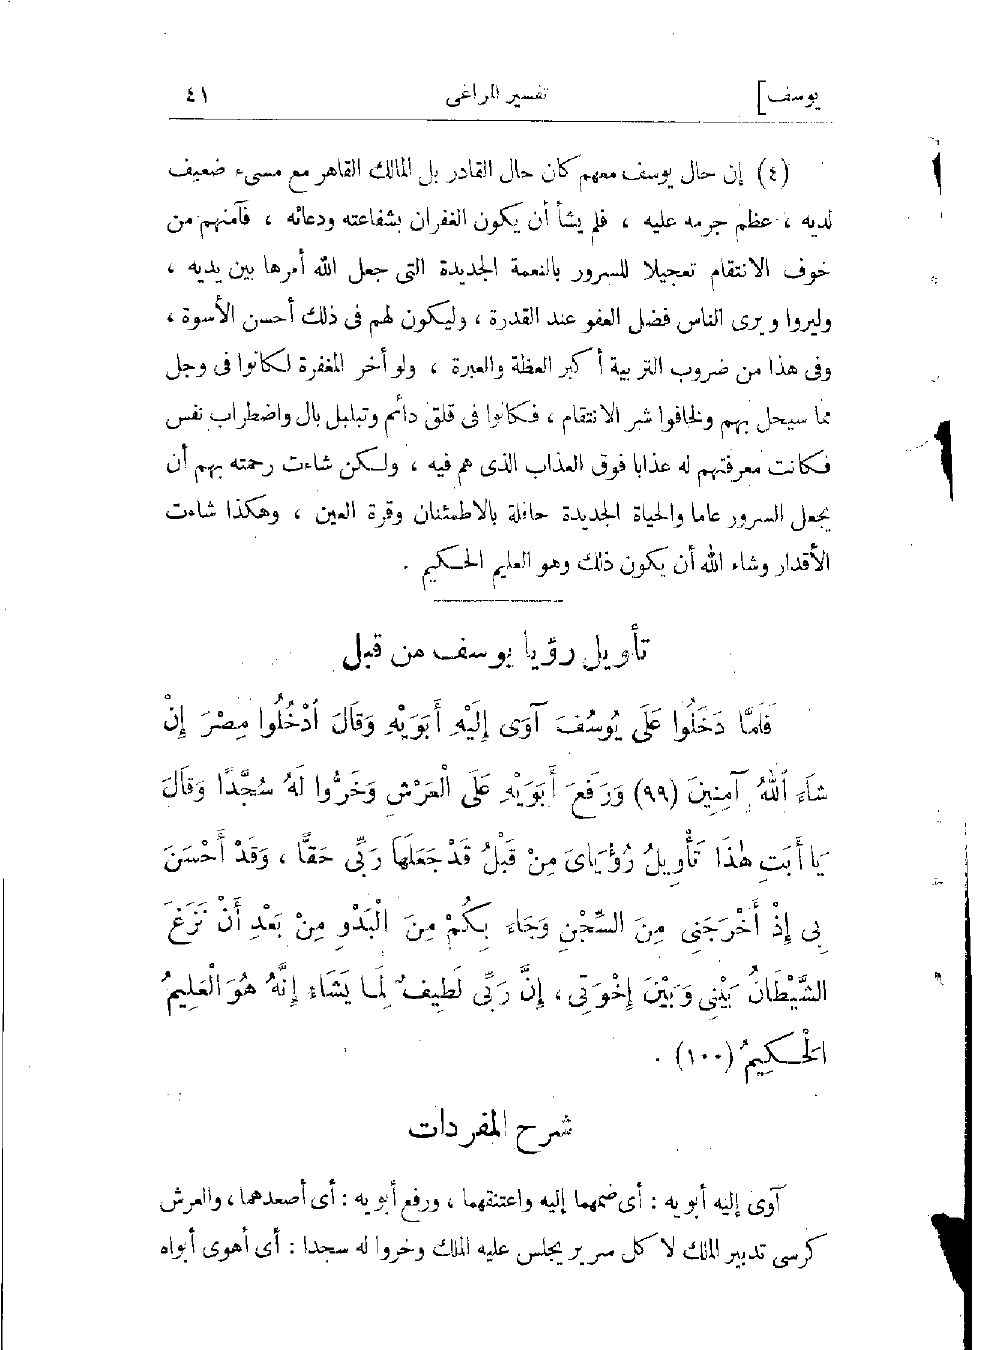 يوسف] تفسير المراغى ٤١
(٤) إن حال يوسف معهم كان حال القادر بل المالك القاهر مع مسىء ضعيف
لديه ، عظم جرمه عليه ، فلم يشأ أن يكون الغفران بشفاعته ودعائه ، فآمنهم من
خوف الانتقام تعجيلا للسرور بالنعمة الجديدة التى جعل الله أمرها بين يديه ،
وليروا ويرى الناس فضل العفو عند القدرة ، وليكون لهم فى ذلك أحسن الأسوة ،
وفى هذا من ضروب التربية أكبر العظة والعبرة ، ولو أخر المغفرة لكانوا فى وجل
مما سيحل بهم ولخافوا شر الانتقام ، فكانوا فى قلق دائم وتبلبل بال واضطراب نفس
فكانت معرفتهم له عذابا فوق العذاب الذى هم فيه ، ولكن شاءت رحمته بهم أن
يجعل السرور عاما والحياة الجديدة حافلة بالاطمئنان وقرة العين ، وهكذا شاءت
الأقدار وشاء الله أن يكون ذلك وهو العليم الحكيم .
تأويل رؤيا يوسف من قبل
فَلَمَّا دَخَلُوا عَلَى يُوسُفَ آوَى إِلَيْهِ أَبَوَيْهِ وَقَالَ ادْخُلُوا مِصْرَ إِنْ
شَاءَ اللهُ آمِنِينَ (٩٩) وَرَفَعَ أَبَوَيْهِ عَلَى الْعَرْشِ وَخَرُّوا لَهُ سُجَّدًا وَقَالَ
يَا أَبَتِ هٰذَا تَأْوِيلُ رُؤْيَاىَ مِنْ قَبْلُ قَدْ جَعَلَهَا رَبِّى حَقًّا ، وَقَدْ أَحْسَنَ
بِى إِذْ أَخْرَجَنِى مِنَ السِّجْنِ وَجَاءَ بِكُمْ مِنَ الْبَدْوِ مِنْ بَعْدِ أَنْ نَزَغَ
الشَّيْطَانُ بَيْنِى وَبَيْنَ إِخْوَتِى ، إِنَّ رَبِّى لَطِيفٌ لِمَا يَشَاءُ إِنَّهُ هُوَ الْعَلِيمُ
الْحَكِيمُ (١٠٠) .
شرح المفردات
آوى إليه أبويه : أى ضمهما إليه واعتنقهما ، ورفع أبويه : أى أصعدهما ، والعرش
كرسى تدبير الملك لا كل سرير يجلس عليه الملك وخروا له سجدا : أى أهوى أبواه